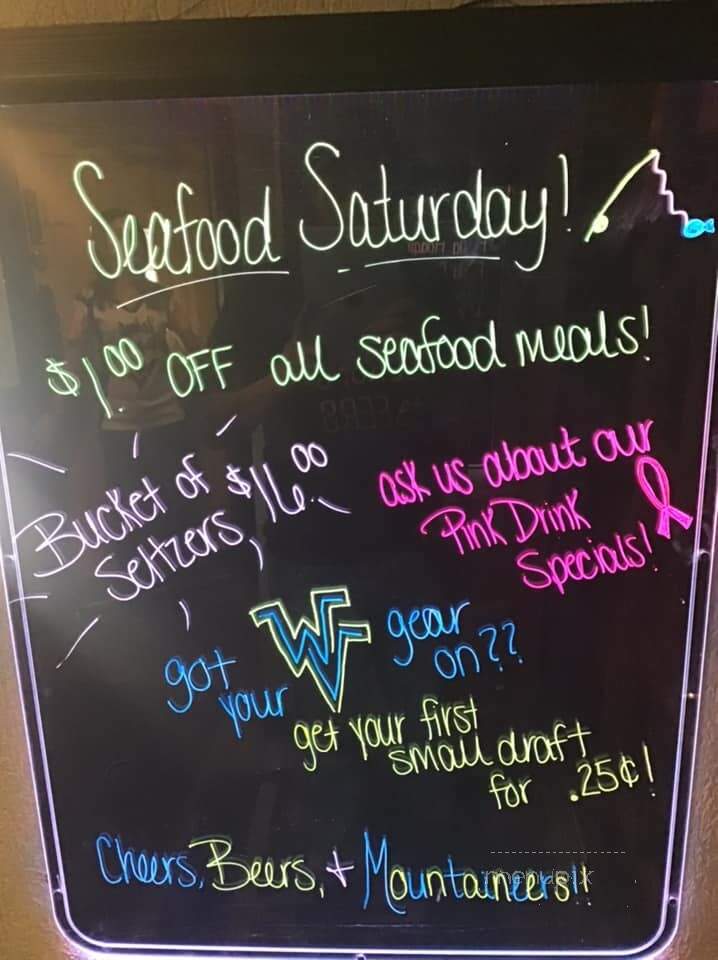 Seafood Saturday!
$1.00 OFF all seafood meals!
Bucket of $16.00
Seltzers,
ask us about our
Pink Drink
Specials!
got your WV gear on??
get your first
small draft
for .25¢!
Cheers, Beers, + Mountaineers!!
menupix